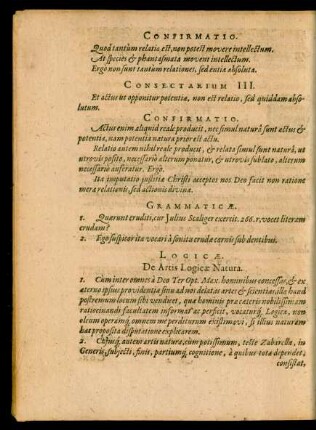 CONFIRMATIO.
Quod tantùm relatio est, non potest movere intellectum.
At species & phantasmata movent intellectum.
Ergò non sunt tantùm relationes, sed entia absoluta.
CONSECTARIUM III.
Et actus ut opponitur potentiæ, non est relatio, sed quiddam abso-
lutum.
CONFIRMATIO.
Actus enim aliquid reale producit, nec simul naturâ sunt actus &
potentia, nam potentia natura prior est actu.
Relatio autem nihil reale producit, & relata simul sunt naturâ, ut
utrovis posito, necessariò alterum ponatur, & utrovis sublato, alterum
necessariò auferatur. Ergò.
Ita imputatio justitiæ Christi acceptos nos Deo facit non ratione
meræ relationis, sed actionis divinæ.
GRAMMATICÆ.
1. Quærunt eruditi, cur Julius Scaliger exercit. 266. r. vocet literam
crudam?
2. Ego suspicor ita vocari à sonitu crudæ carnis sub dentibus.
LOGICÆ.
De Artis Logicæ Natura.
1. Cum inter omnes à Deo Ter Opt. Max. hominibus concessas, & ex
æterno ipsius providentiæ sinu ad nos delatas artes & scientias, ille haud
postremum locum sibi vendicet, quæ hominis præ cæteris nobilissimam
ratiocinandi facultatem informat ac perfecit, vocatúrq, Logica, non
oleum operámq, omnem me perditurum existimavi, si illius naturam
hac proposita disputatione explicarem.
2. Cujusq, autem artis natura, cùm potissimum, teste Zabarella, in
Generis, subjecti, finis, partiumq, cognitione, à quibus tota dependet,
consistat,